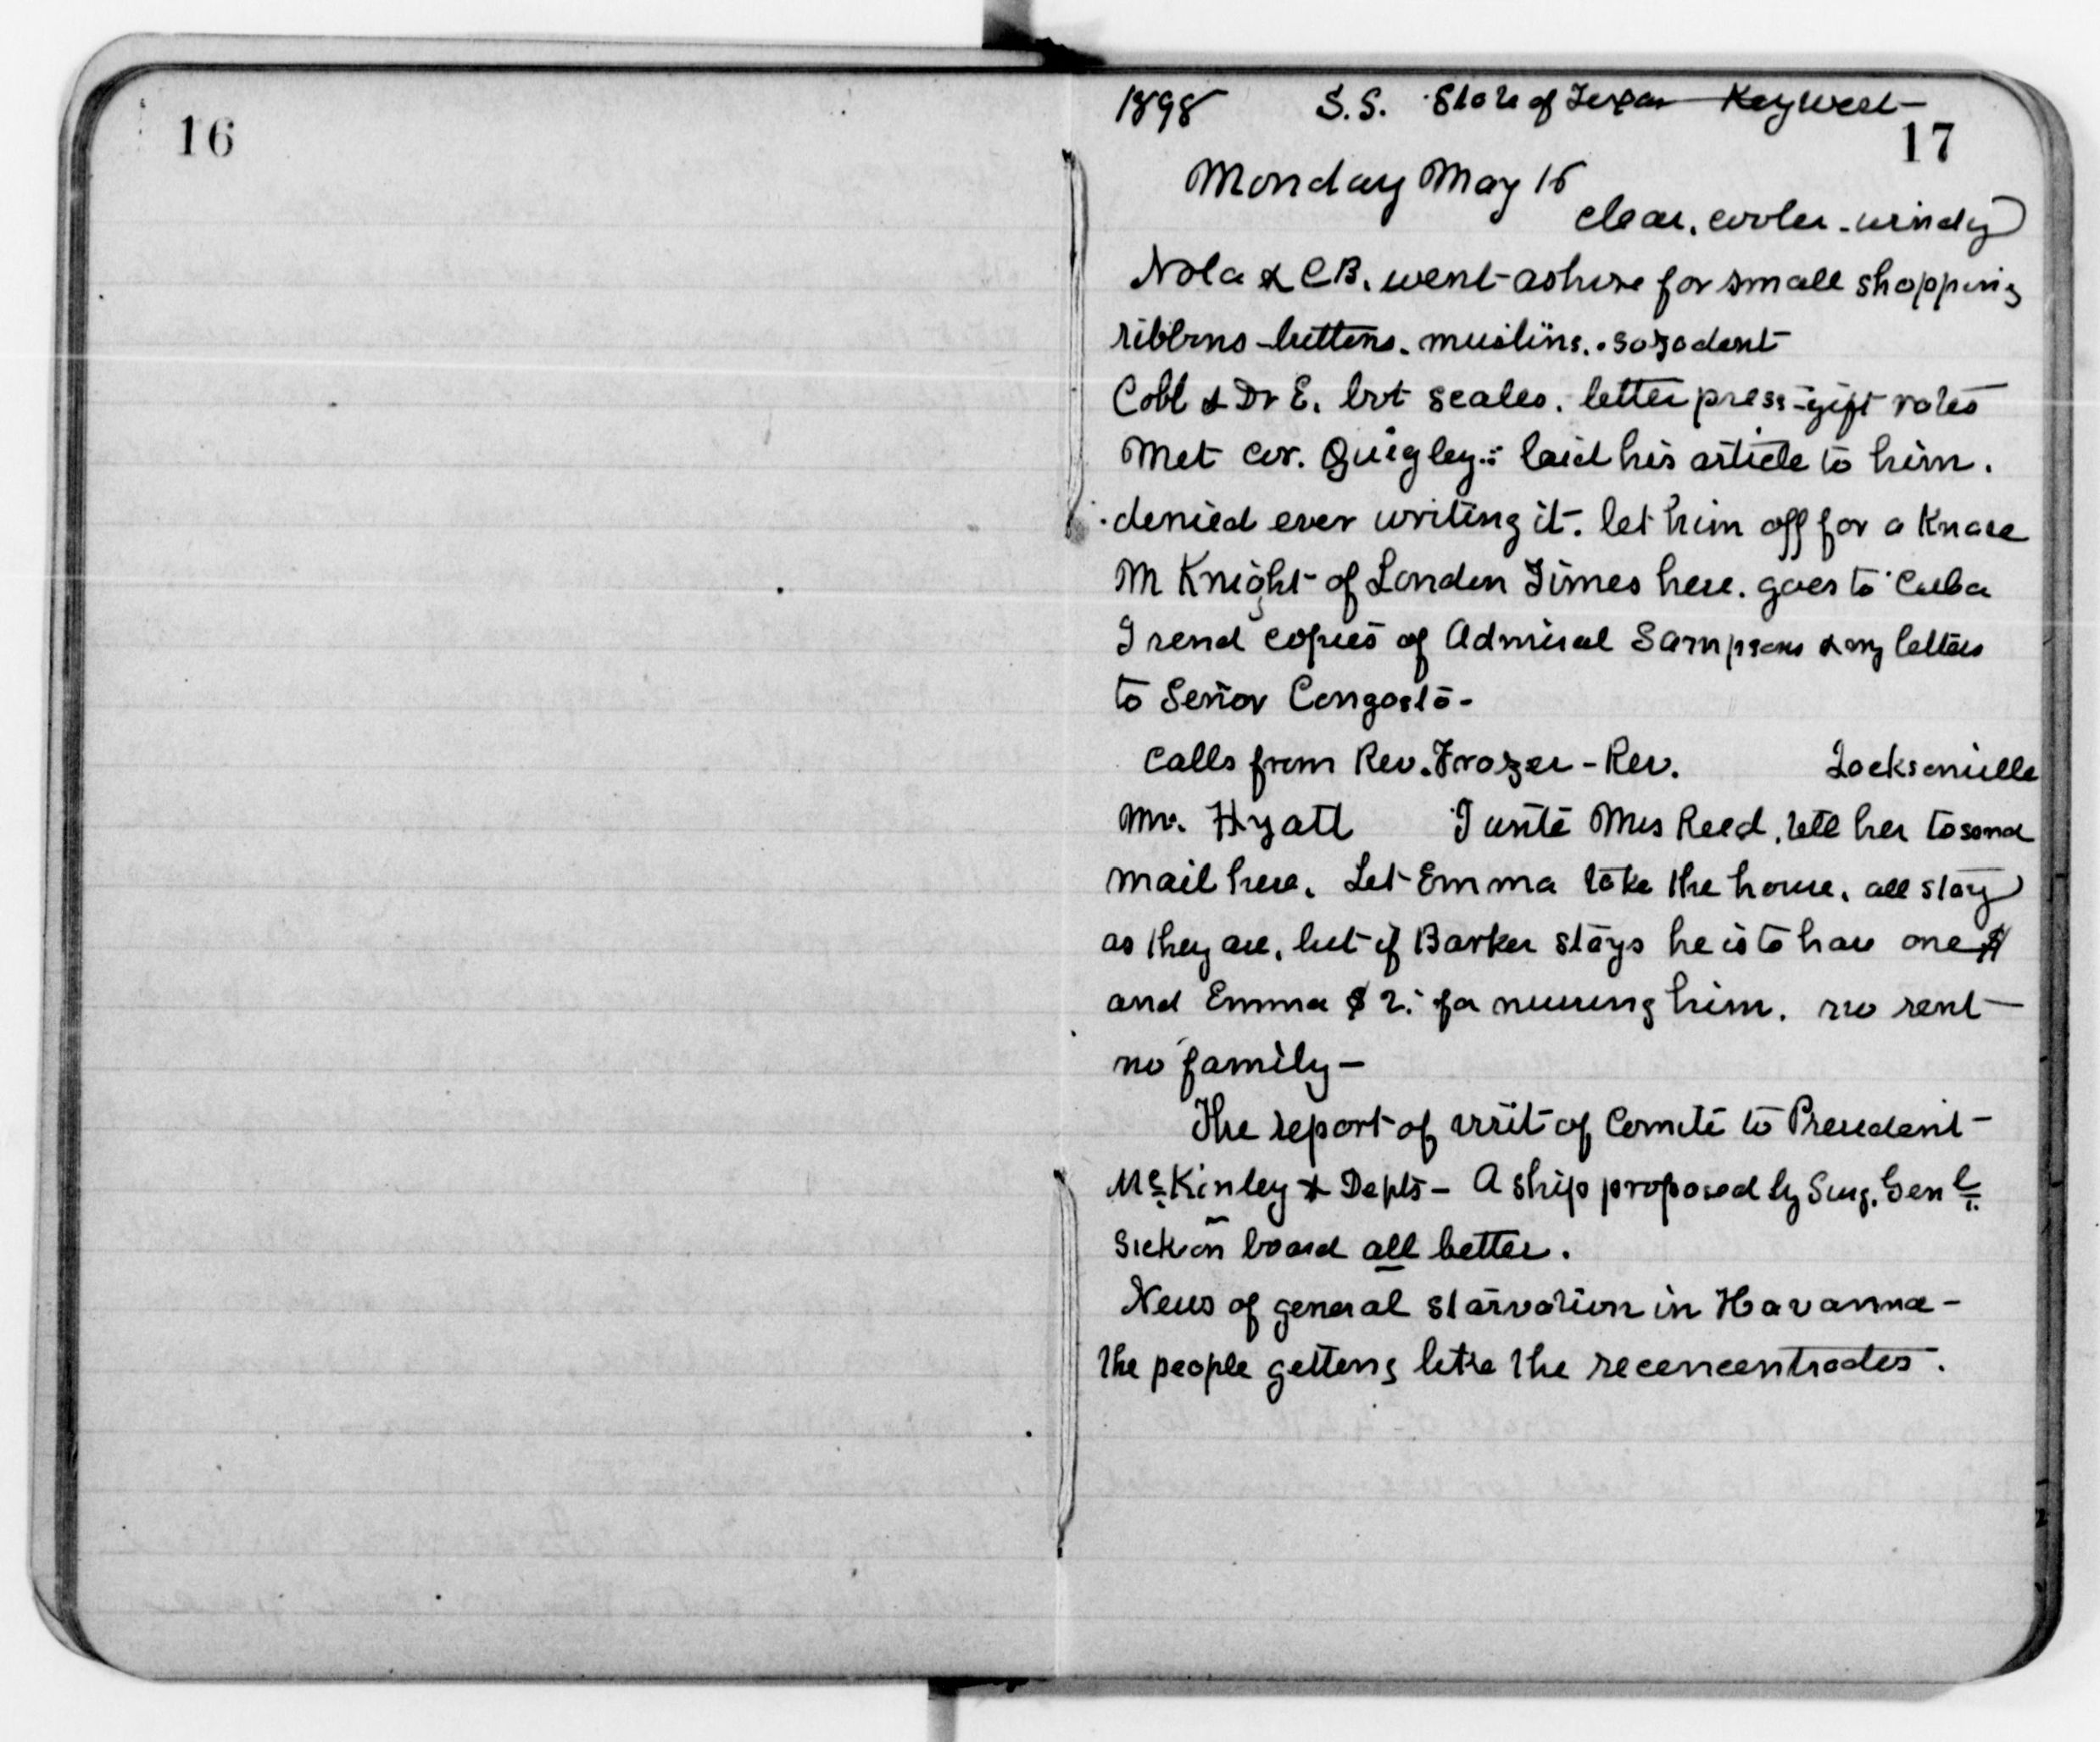 16
1898 S.S. State of Texas Key West -
17
Monday May 16
clear, cooler - windy
Nola & CB. went ashore for small shopping
ribbons - buttons. muslins. sozodent
Cobb & Dr E. bot scales. letter press - gift rates
Met Cor. Quigley: laid his article to him.
denied ever writing it. let him off for a Knave
M Knight of London Times here. goes to Cuba
I send copies of Admiral Sampsons & my letters
to Señor Congosto -
Calls from Rev. Frazer - Rev. Jacksonville
Mr. Hyatt I write Mrs Reed, tell her to send
mail here. Let Emma take the house, all stay
as they are, but if Barker stays he is to have one $
and Emma $ 2. for nursing him. no rent -
no family -
The report of visit of Comité to President -
McKinley & Depts - A ship proposed by Surg. Genl.
Sick on board all better.
News of general starvation in Havanna -
the people getting like the reconcentrados.